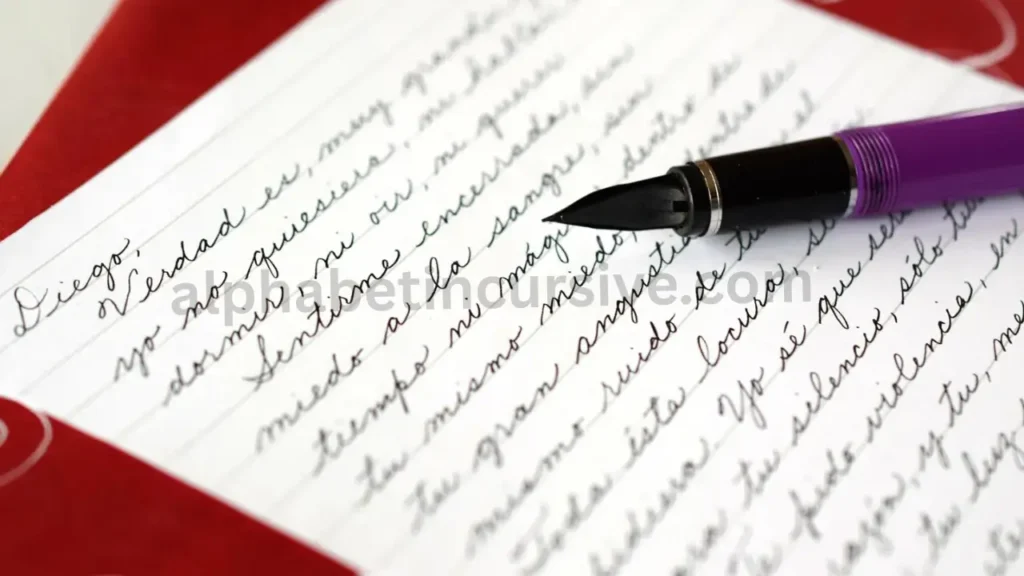 Diego,
Verdad es, muy grande
yo no quisiera, ni hablar
dormir, ni oir, ni querer
Sentirme encerrada, sin
miedo a la sangre, sin
tiempo ni mági dentro de
tu mismo miedo, dentro de
tu gran angustia el
mismo ruido de tu
Toda ésta locura, si
pidiera Yo sé que
para tu silencio, sólo
Te pido violencia, en
razón, y tu, me
tu luz
alphabetincursive.com